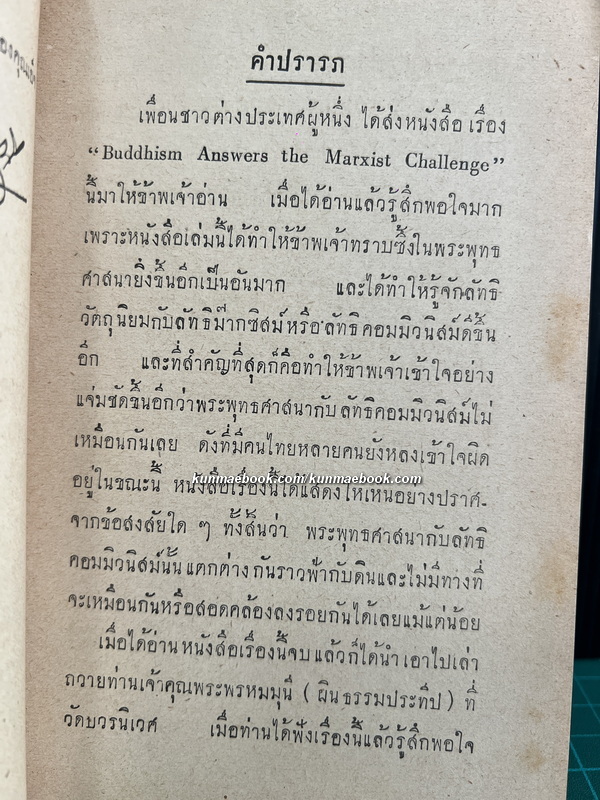 คำปรารภ
เพื่อนชาวต่างประเทศผู้หนึ่ง ได้ส่งหนังสือ เรื่อง
“Buddhism Answers the Marxist Challenge”
นี้มาให้ข้าพเจ้าอ่าน เมื่อได้อ่านแล้วรู้สึกพอใจมาก
เพราะหนังสือเล่มนี้ได้ทำให้ข้าพเจ้าทราบซึ้งในพระพุทธ
ศาสนายิ่งขึ้นอีกเป็นอันมาก และได้ทำให้รู้จักลัทธิ
วัตถุนิยมกับลัทธิม๊ากซิสม์ หรือ ลัทธิ คอมมิวนิสม์ดีขึ้น
อีก และที่สำคัญที่สุดก็คือทำให้ข้าพเจ้าเข้าใจอย่าง
แจ่มชัดขึ้นอีกว่าพระพุทธศาสนากับ ลัทธิ คอมมิวนิสม์ไม่
เหมือนกันเลย ดังที่มีคนไทยหลายคนยังหลงเข้าใจผิด
อยู่ในขณะนี้ หนังสือเรื่องนี้ได้แสดงให้เห็นอย่างปราศ-
kunmaebook.com/kunmaebook.com
จากข้อสงสัยใด ๆ ทั้งสิ้นว่า พระพุทธศาสนากับลัทธิ
คอมมิวนิสม์นั้น แตกต่าง กันราวฟ้ากับดินและไม่มีทางที่
จะเหมือนกันหรือสอดคล้องลงรอยกันได้เลยแม้แต่น้อย
เมื่อได้อ่าน หนังสือเรื่องนี้จบ แล้วก็ได้นำ เอาไปเล่า
ถวายท่านเจ้าคุณพระพรหมมุนี ( ผิน ธรรมประทีป ) ที่
วัดบวรนิเวศ เมื่อท่านได้ฟังเรื่องนี้แล้วรู้สึกพอใจ